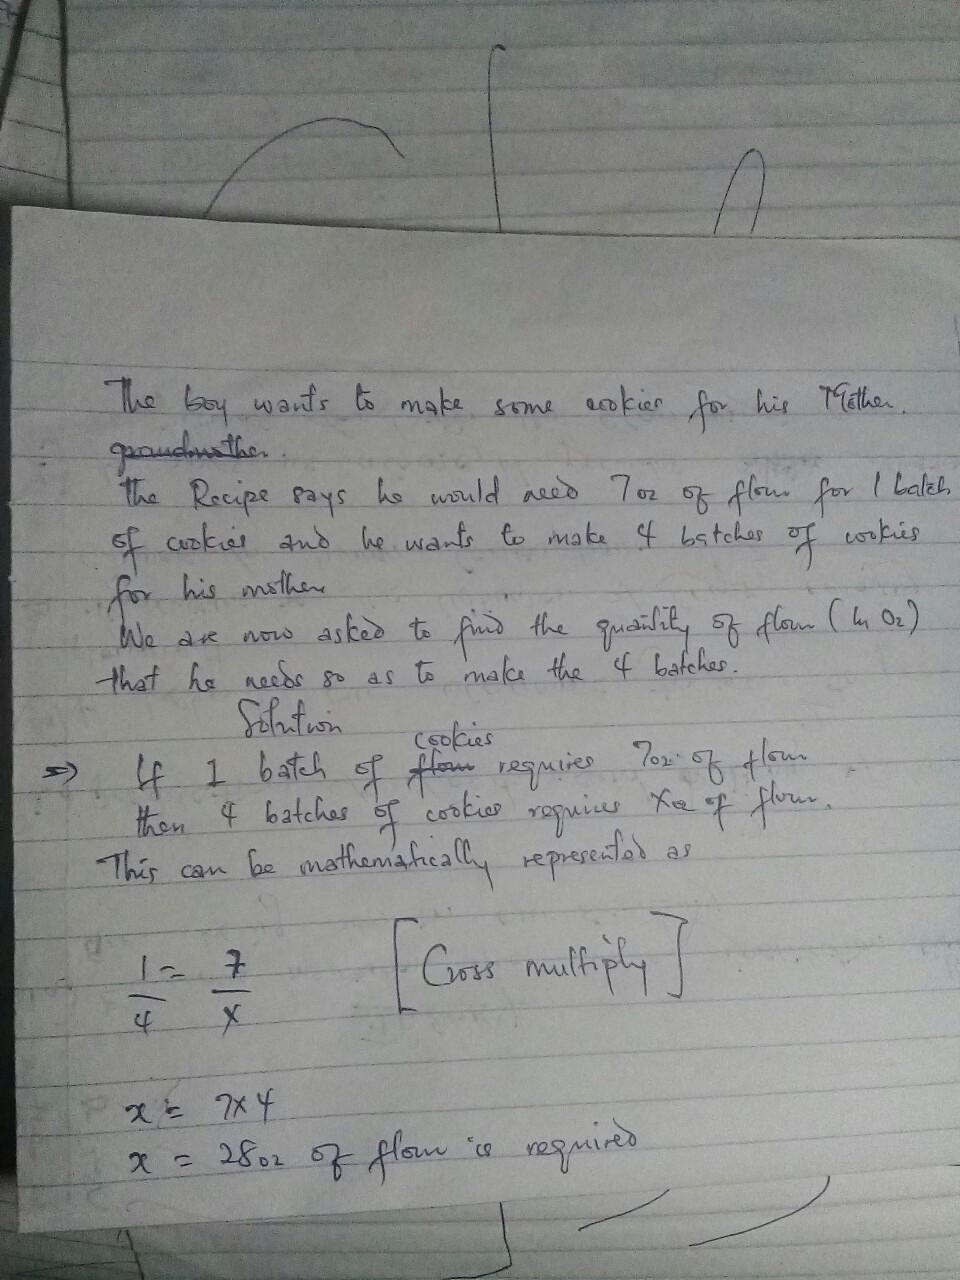 The boy wants to make some cookies for his Mother.
grandmother.
the Recipe says he would need 7oz of flour for 1 batch
of cookies and he wants to make 4 batches of cookies
for his mother
We are now asked to find the quantity of flour (in Oz)
that he needs so as to make the 4 batches.
Solution
cookies
⇒ If 1 batch of flour requires 7oz of flour
then 4 batches of cookies requires Xoz of flour.
This can be mathematically represented as
1 = 7 [Cross multiply]
4 x
x = 7x4
x = 28oz of flour is required